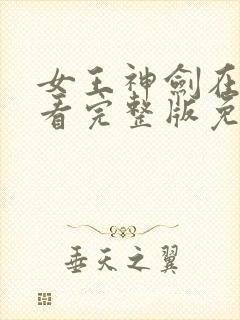 女王神劍在
看完整版免
垂天之翼